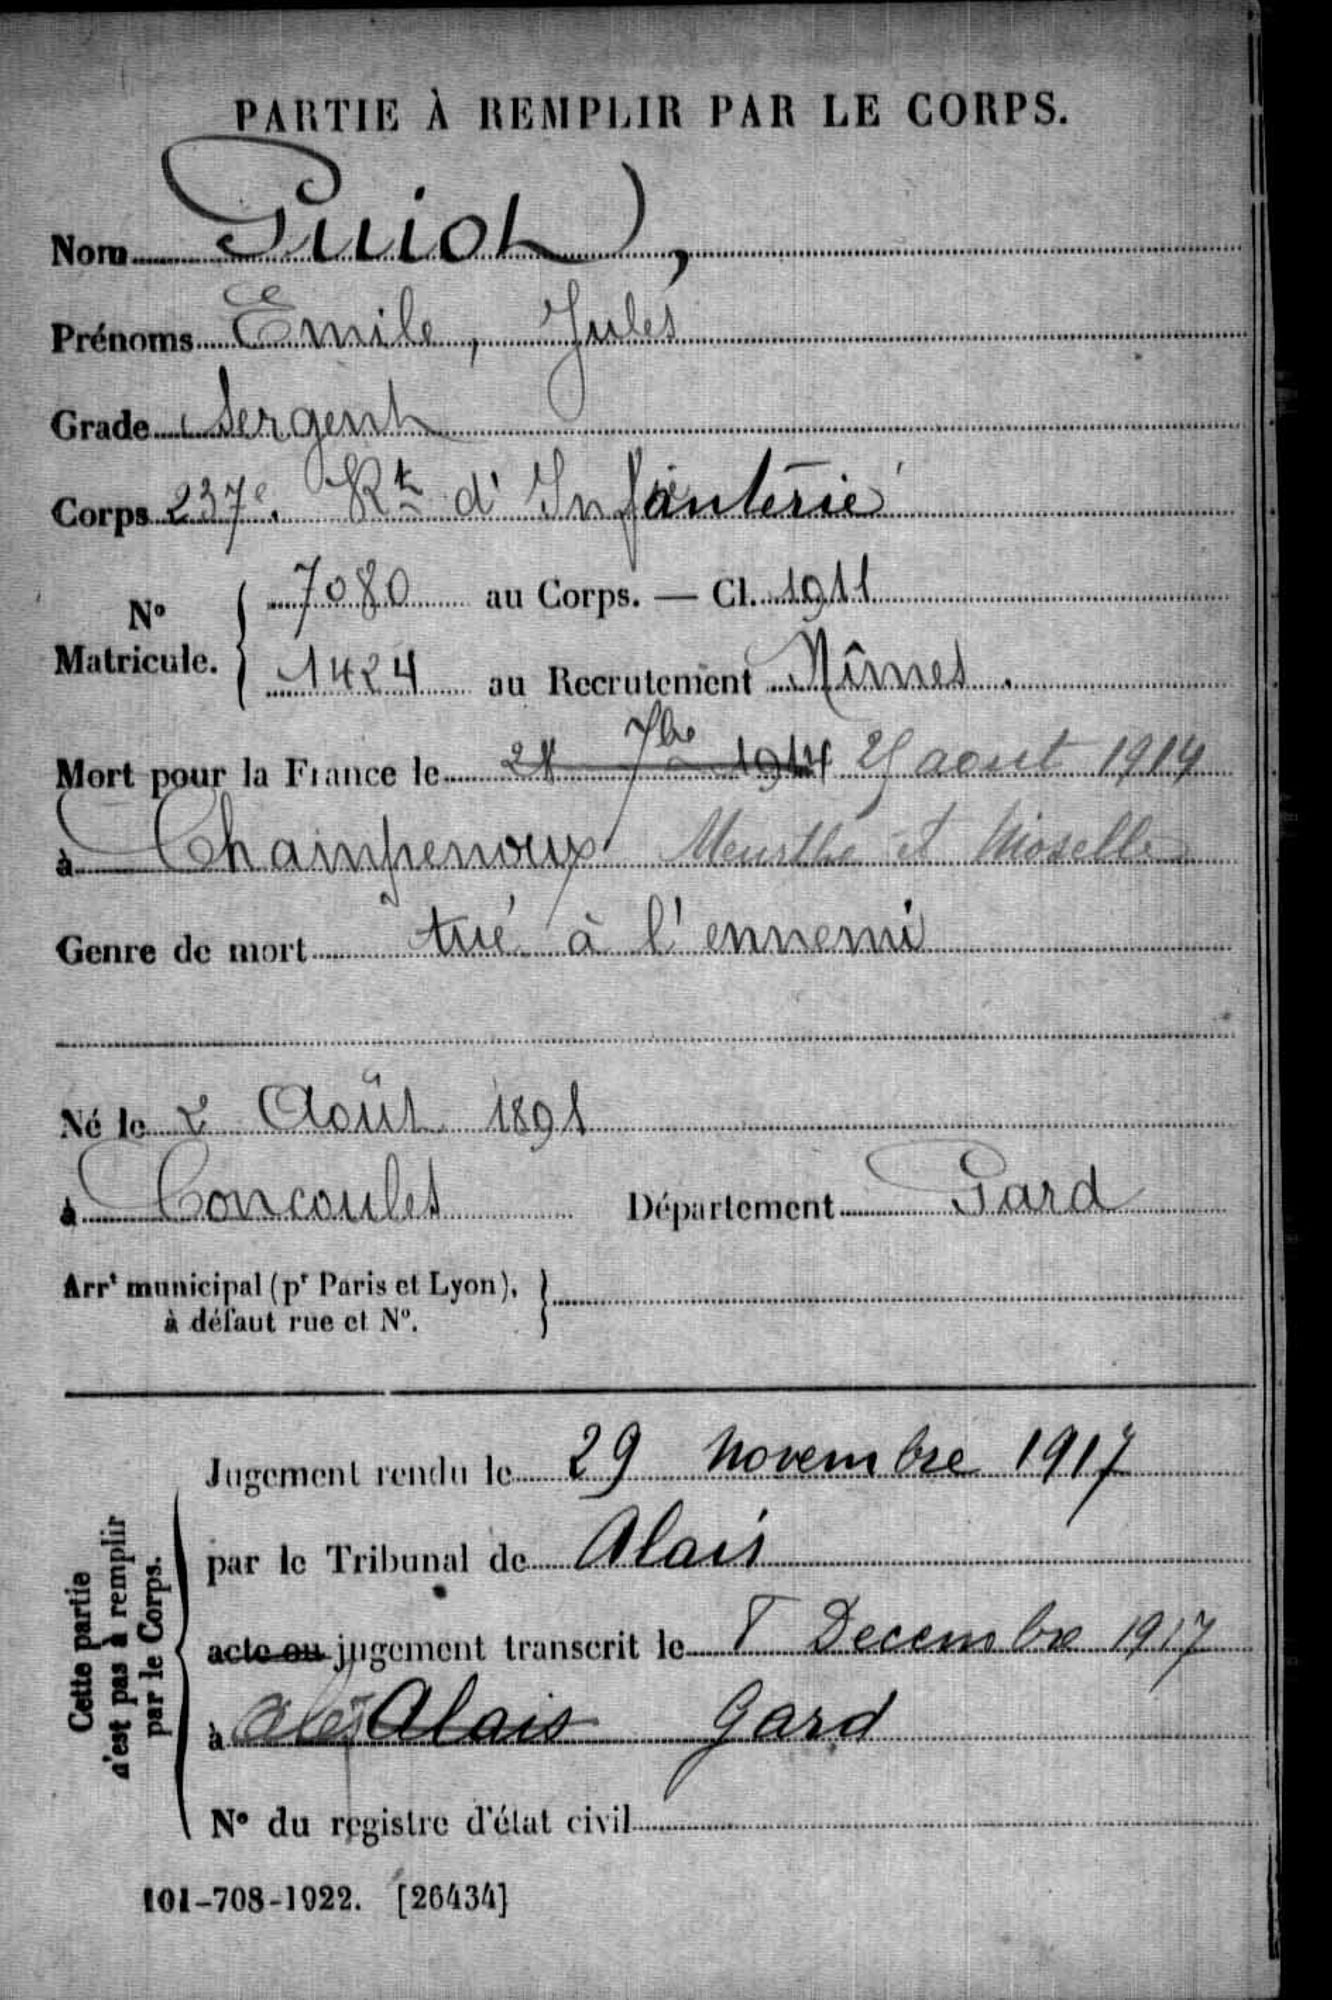 PARTIE À REMPLIR PAR LE CORPS.
Nom Guiot,
Prénoms Emile, Jules
Grade Sergent
Corps 237e. Rt d'Infanterie
No Matricule. { 7080 au Corps. — Cl. 1911
1424 au Recrutement Nîmes.
Mort pour la France le 7bre 1914 25 aout 1914
à Champenoux Meurthe et Moselle
Genre de mort tué à l'ennemi
Né le 2 Août 1891
à Concoules Département Gard
Arrt municipal (pr Paris et Lyon), }
à défaut rue et No.
Cette partie
n'est pas à remplir
par le Corps.
Jugement rendu le 29 novembre 1917
par le Tribunal de Alais
acte ou jugement transcrit le 8 Decembre 1917
à Alais Gard
No du registre d'état civil
101-708-1922. [26434]